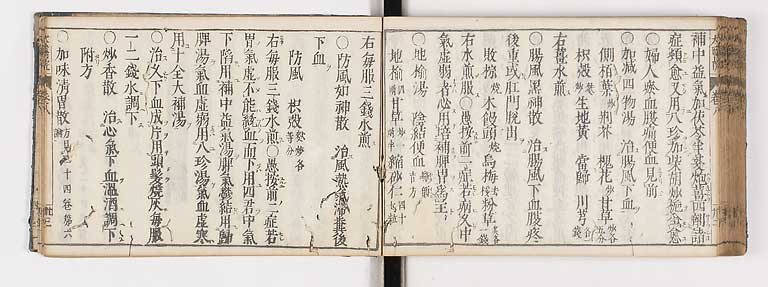 補中益氣加茯苓半夏炮薑四劑諸
症頓愈又用八珍加柴胡炒梔全愈
○婦人糞血股痛便血見前
○加減四物湯 治腸風下血
側栢葉炒 荊芥 槐花炒 甘草炒各五分
枳殼炒 生地黃 當歸 川芎各一錢
右薑水煎
○腸風黑神散 治腸風下血股疼
後重或肛門脫出
敗棕燒 木饅頭燒 烏梅 粉草
右水煎服○愚按前二症若病久中
氣虛弱者必用培補脾胃為主
○地榆湯 陰結便血
地榆 甘草 縮砂仁
右每服三錢水煎
○防風如神散 治風熱氣滯糞後
下血
防風 枳殼麩炒各等分
右每服三錢水煎○愚按前二症若
胃氣虛不能統血而下用四君中氣
下陷用補中益氣湯脾氣鬱結用歸
脾湯氣血虛弱用八珍湯氣血虛寒
用十全大補湯
○治久下血成疔用頭髮燒灰每服
一二錢水調下
○炒香散 治心氣下血溫酒調下
附方
○加味清胃散方見七十四卷第六